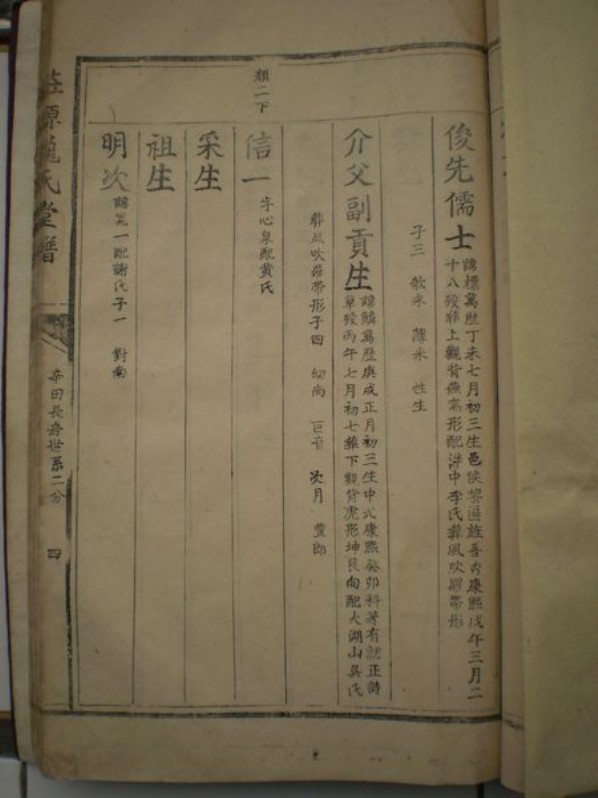 俊先儒士
諱標萬歷丁未七月初三生邑侯旌善士康熙戊午三月二
十八歿葬上觀背燕窩形配洪中李氏葬風吹羅帶形
子三 散米 薄米 性生
介父副貢生
諱鱗萬歷庚戌正月初三生中式康熙癸卯科著有就正詩
草歿丙午七月初七葬下觀背虎形坤艮向配大湖山吳氏
葬風吹羅帶形子四 紉尚 巨音 次月 豐郎
類二下
信一
字心泉配黃氏
采生
祖生
明次
諱冕一配謝氏子一 對南
莊源龍氏堂譜
辛田長房世系二分 四